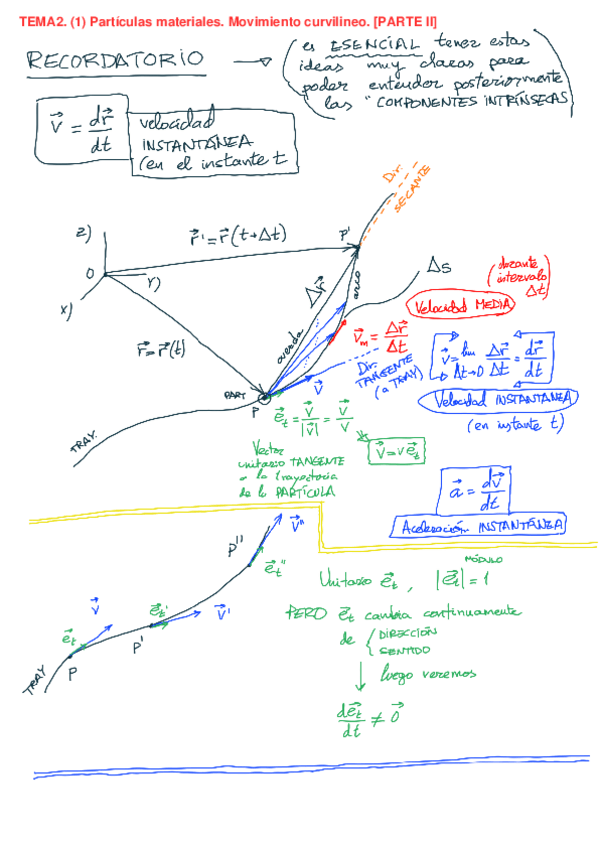 TEMA2. (1) Partículas materiales. Movimiento curvilineo. [PARTE II]
RECORDATORIO → (es ESENCIAL tener estas
ideas muy claras para
poder entender posteriormente
las "COMPONENTES INTRÍNSECAS)
v⃗ = dr⃗/dt
velocidad
INSTANTÁNEA
(en el instante t
Dir.
SECANTE
z)
O
y)
x)
r⃗' = r⃗(t+Δt)
P'
Δr⃗
arco
cuerda
Δs
(durante
intervalo
Δt)
Velocidad MEDIA
v⃗m = Δr⃗/Δt
r⃗ = r⃗(t)
Dir.
TANGENTE
(a TRAY)
v⃗ = lim Δt→0 Δr⃗/Δt = dr⃗/dt
Velocidad INSTANTANEA
(en instante t)
PART
P
v⃗
TRAY.
e⃗t = v⃗/|v⃗| = v⃗/v
v⃗ = v e⃗t
Vector
unitario TANGENTE
a la trayectoria
de la PARTÍCULA
a⃗ = dv⃗/dt
Aceleración INSTANTÁNEA
v⃗"
P''
e⃗t"
v⃗
e⃗t
e⃗t'
v⃗'
P'
P
TRAY
MÓDULO
Unitario e⃗t, |e⃗t| = 1
PERO e⃗t cambia continuamente
de { DIRECCIÓN
SENTIDO
luego veremos
de⃗t/dt ≠ 0⃗